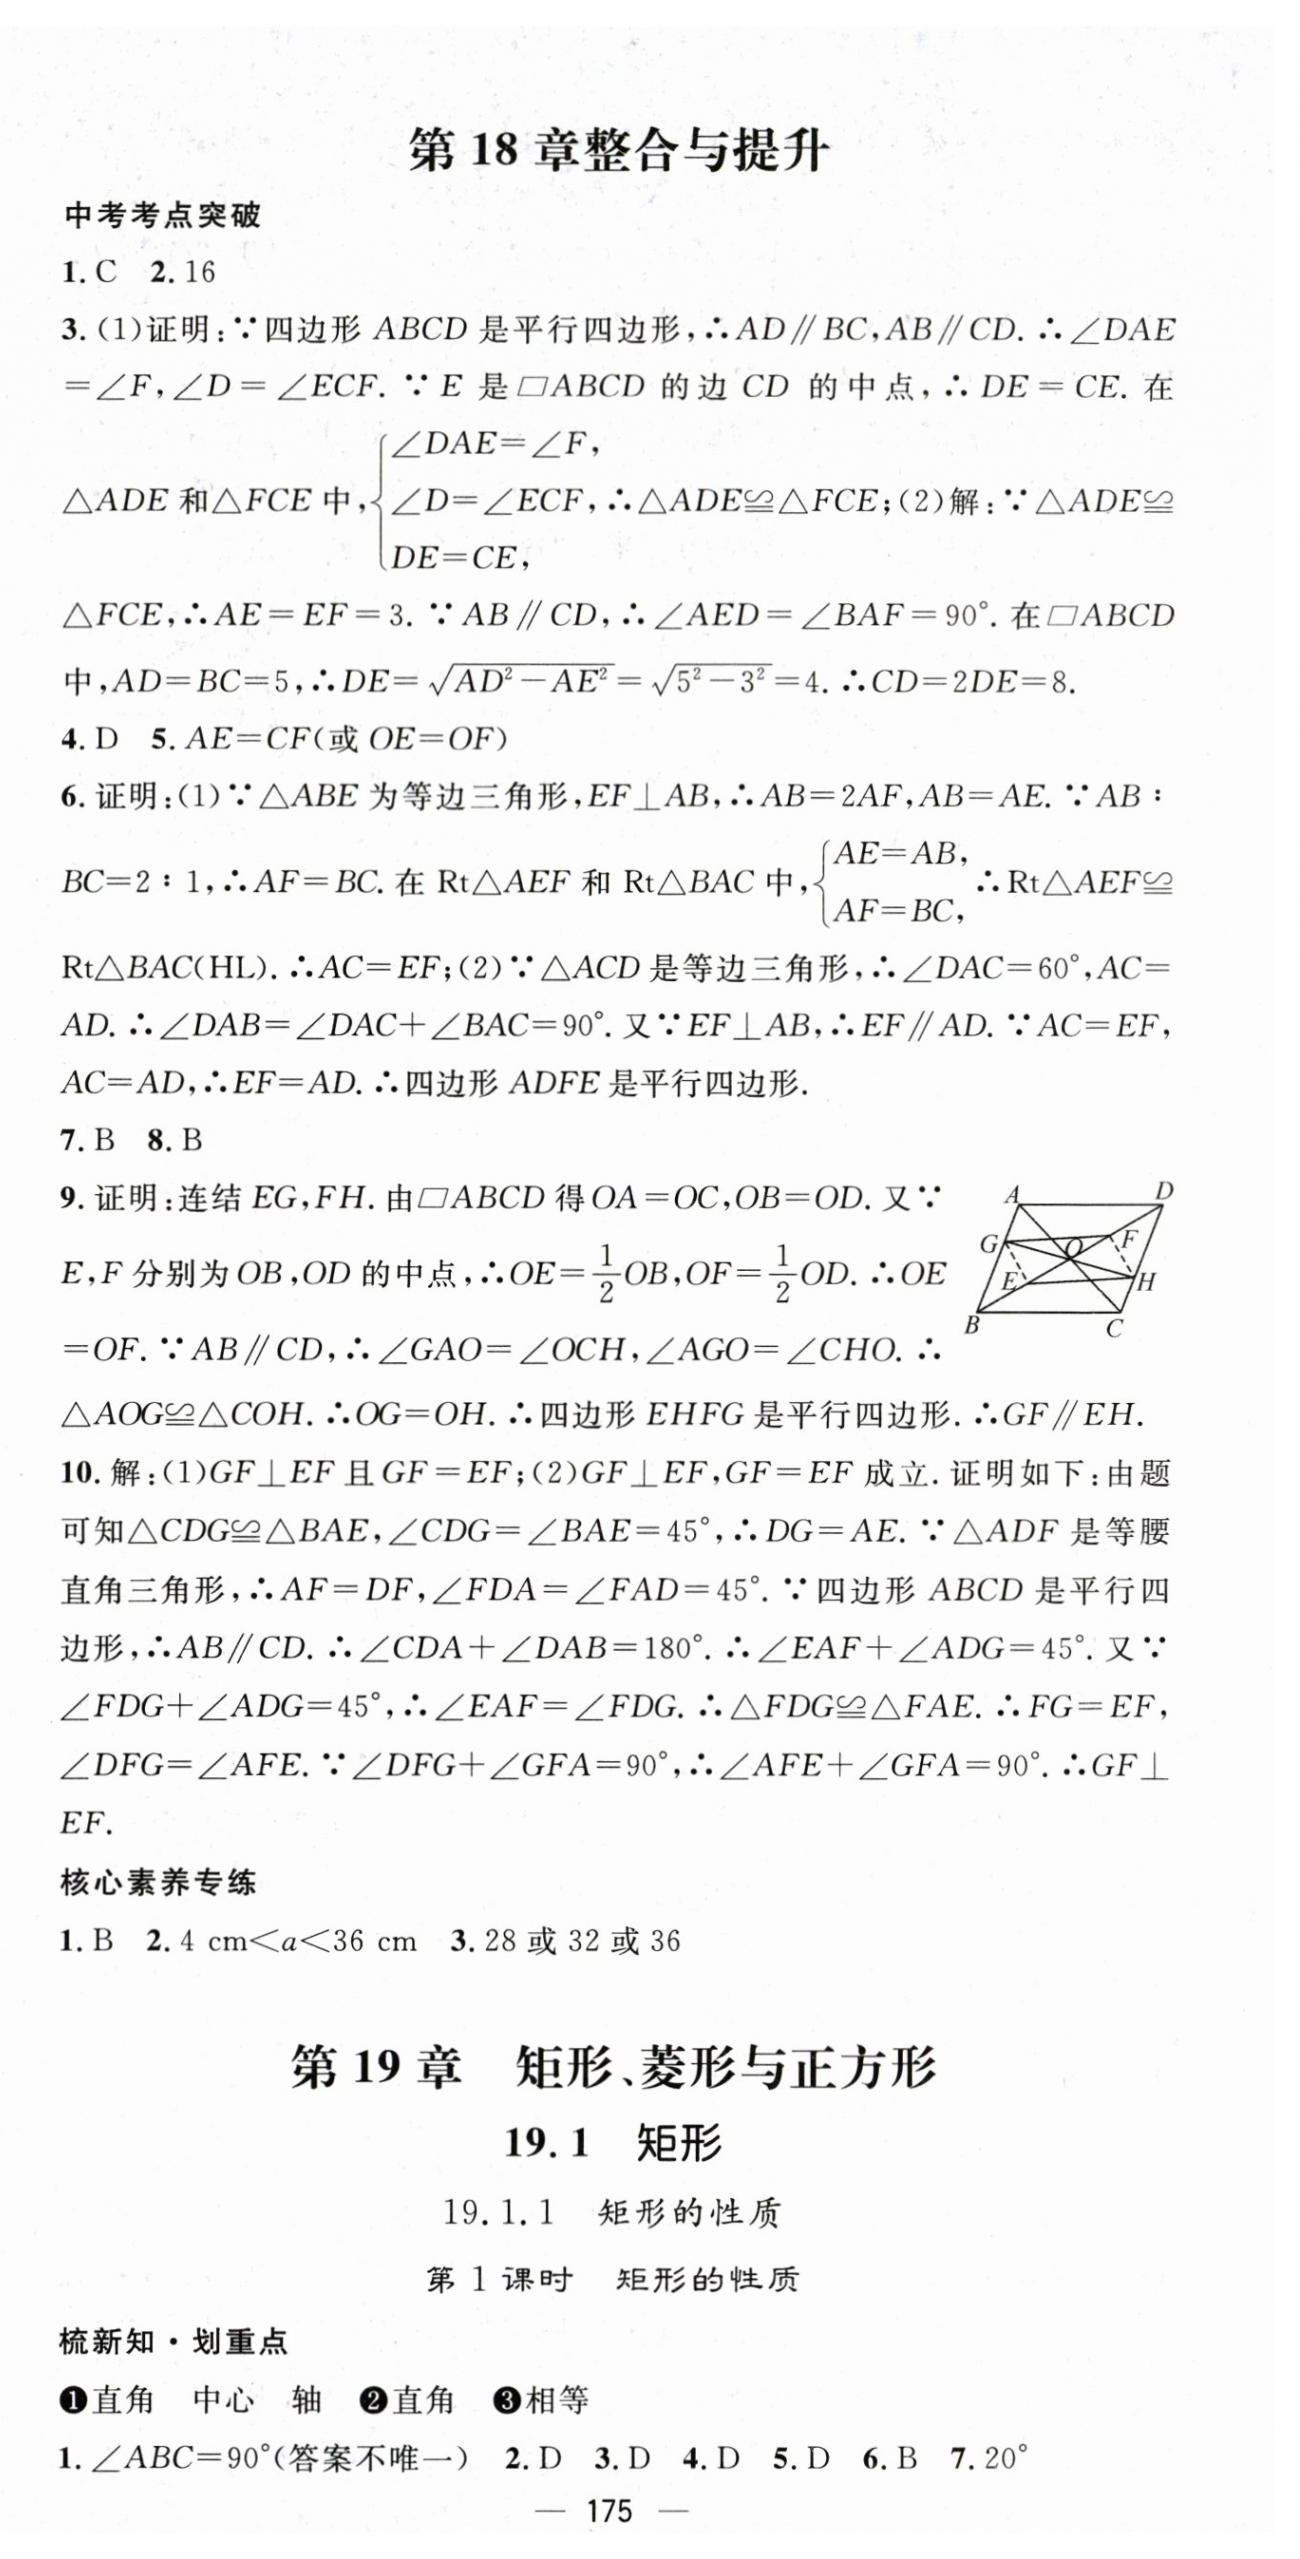 第 18 章整合与提升
中考考点突破
1. C 2. 16
3. (1)证明:∵四边形 ABCD 是平行四边形,∴AD∥BC,AB∥CD. ∴∠DAE
=∠F,∠D=∠ECF. ∵E 是▱ABCD 的边 CD 的中点,∴DE=CE. 在
∠DAE=∠F,
△ADE 和△FCE 中,{∠D=∠ECF,∴△ADE≌△FCE;(2)解:∵△ADE≌
DE=CE,
△FCE,∴AE=EF=3. ∵AB∥CD,∴∠AED=∠BAF=90°. 在▱ABCD
中,AD=BC=5,∴DE=√(AD²-AE²)=√(5²-3²)=4. ∴CD=2DE=8.
4. D 5. AE=CF(或 OE=OF)
6. 证明:(1)∵△ABE 为等边三角形,EF⊥AB,∴AB=2AF,AB=AE. ∵AB∶
AE=AB,
BC=2∶1,∴AF=BC. 在 Rt△AEF 和 Rt△BAC 中,{ ∴Rt△AEF≌
AF=BC,
Rt△BAC(HL). ∴AC=EF;(2)∵△ACD 是等边三角形,∴∠DAC=60°,AC=
AD. ∴∠DAB=∠DAC+∠BAC=90°. 又∵EF⊥AB,∴EF∥AD. ∵AC=EF,
AC=AD,∴EF=AD. ∴四边形 ADFE 是平行四边形.
7. B 8. B
9. 证明:连结 EG,FH. 由▱ABCD 得 OA=OC,OB=OD. 又∵
E,F 分别为 OB,OD 的中点,∴OE=1/2 OB,OF=1/2 OD. ∴OE
=OF. ∵AB∥CD,∴∠GAO=∠OCH,∠AGO=∠CHO. ∴
△AOG≌△COH. ∴OG=OH. ∴四边形 EHFG 是平行四边形. ∴GF∥EH.
A D
G O F
E H
B C
10. 解:(1)GF⊥EF 且 GF=EF;(2)GF⊥EF,GF=EF 成立. 证明如下:由题
可知△CDG≌△BAE,∠CDG=∠BAE=45°,∴DG=AE. ∵△ADF 是等腰
直角三角形,∴AF=DF,∠FDA=∠FAD=45°. ∵四边形 ABCD 是平行四
边形,∴AB∥CD. ∴∠CDA+∠DAB=180°. ∴∠EAF+∠ADG=45°. 又∵
∠FDG+∠ADG=45°,∴∠EAF=∠FDG. ∴△FDG≌△FAE. ∴FG=EF,
∠DFG=∠AFE. ∵∠DFG+∠GFA=90°,∴∠AFE+∠GFA=90°. ∴GF⊥
EF.
核心素养专练
1. B 2. 4 cm<a<36 cm 3. 28 或 32 或 36
第 19 章 矩形、菱形与正方形
19. 1 矩形
19. 1. 1 矩形的性质
第 1 课时 矩形的性质
梳新知·划重点
❶直角 中心 轴 ❷直角 ❸相等
1. ∠ABC=90°(答案不唯一) 2. D 3. D 4. D 5. D 6. B 7. 20°
— 175 —